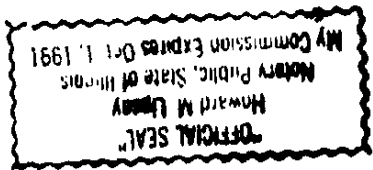 "OFFICIAL SEAL"
Howard M
Notary Public, State of Illinois
My Commission Expires Oct. 1, 1991